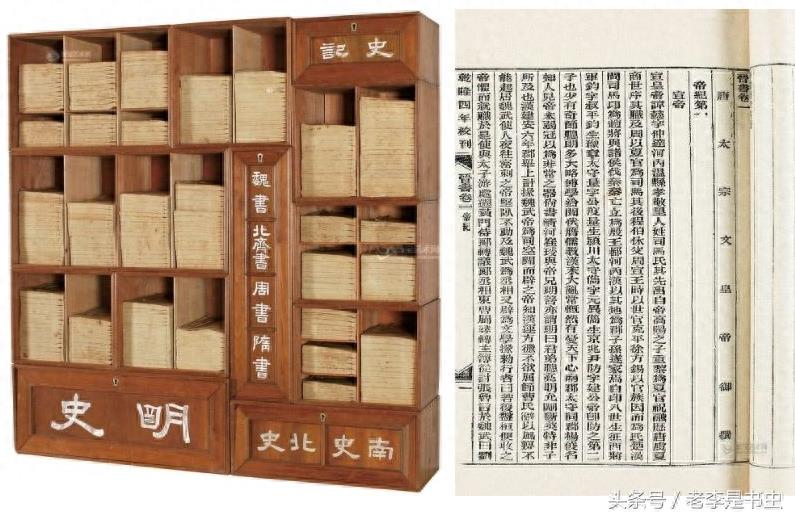 史記
魏書
北齊書
周書
隋書
明史
南史
北史
晉書卷一
唐太宗文皇帝御撰
帝紀第一
宣帝
宣皇帝諱懿字仲達河內溫縣孝敬里人姓司馬氏其先出自帝高陽之子重黎爲夏官祝融歷唐虞夏
商世序其職及周以夏官爲司馬其後程伯休父周宣王時以世官克平徐方錫以官族因而爲氏楚漢
間司馬卬爲趙將與諸侯伐秦秦亡立爲殷王都河內漢以其地爲郡子孫遂家焉自卬八世生征西將
軍鈞字叔平鈞生豫章太守量字公度量生潁川太守儁字元異儁生京兆尹防字建公帝卽防之第二
子也少有奇節聰明多大略博學洽聞伏膺儒教漢末大亂常慨然有憂天下心南郡太守同郡楊俊名
知人見帝未弱冠以爲非常之器尚書清河崔琰與帝兄朗善亦謂朗曰君弟聰亮明允剛斷英特非子
所及也漢建安六年郡舉上計掾魏武帝爲司空聞而辟之帝知漢運方微不欲屈節曹氏辭以風痺不
能起居魏武使人夜往密刺之帝堅臥不動及魏武爲丞相又辟爲文學掾敕行者曰若復盤桓便收之
帝懼而就職於是使與太子游處遷黃門侍郎轉議郎丞相東曹屬尋轉主簿從討張魯言於魏武曰劉
乾隆四年校刊
晉書卷一
帝紀
头条号 / 老李是书虫